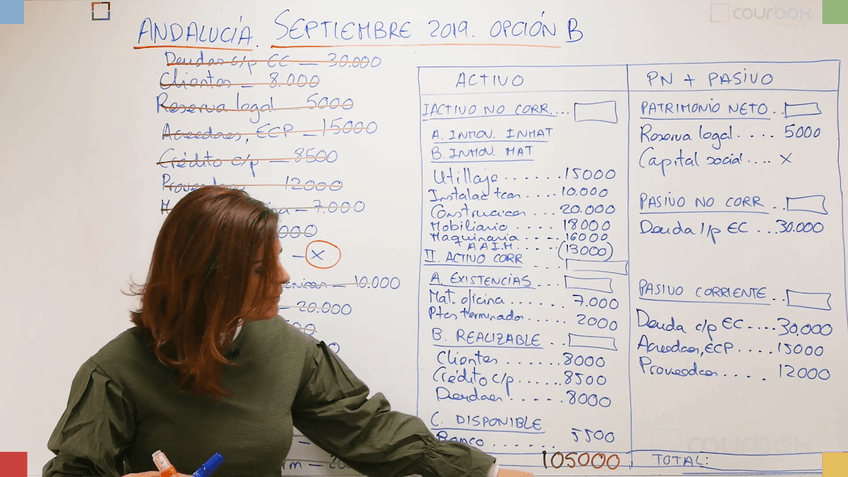 courbox
ANDALUCÍA. SEPTIEMBRE 2019. OPCIÓN B
Deudas c/p EC — 30.000
Clientes — 8.000
Reserva legal — 5000
Acreedores, ECP — 15000
Crédito c/p — 8500
Proveedores 12000
7.000
000
— X
10.000
— 20.000
ACTIVO
I ACTIVO NO CORR....
A. INMOV. INMAT
B. INMOV. MAT
Utillaje ....... 15000
Instalac tcas .... 10.000
Construcciones .... 20.000
Mobiliario ....... 18000
Maquinaria ..... 16000
A.A.I.M. .... (13000)
II. ACTIVO CORR
A. EXISTENCIAS ....
Mat. oficina ....... 7.000
Ptos terminados .... 2000
B. REALIZABLE ....
Clientes ....... 8000
Crédito c/p ...... 8500
Deudores ...... 8000
C. DISPONIBLE
Banco ........ 5500
105000
PN + PASIVO
PATRIMONIO NETO ..
Reserva legal ..... 5000
Capital social .... X
PASIVO NO CORR ..
Deuda l/p EC ... 30.000
PASIVO CORRIENTE ..
Deuda c/p EC .... 30,000
Acreedores, ECP .... 15000
Proveedores ..... 12000
TOTAL:
courbox